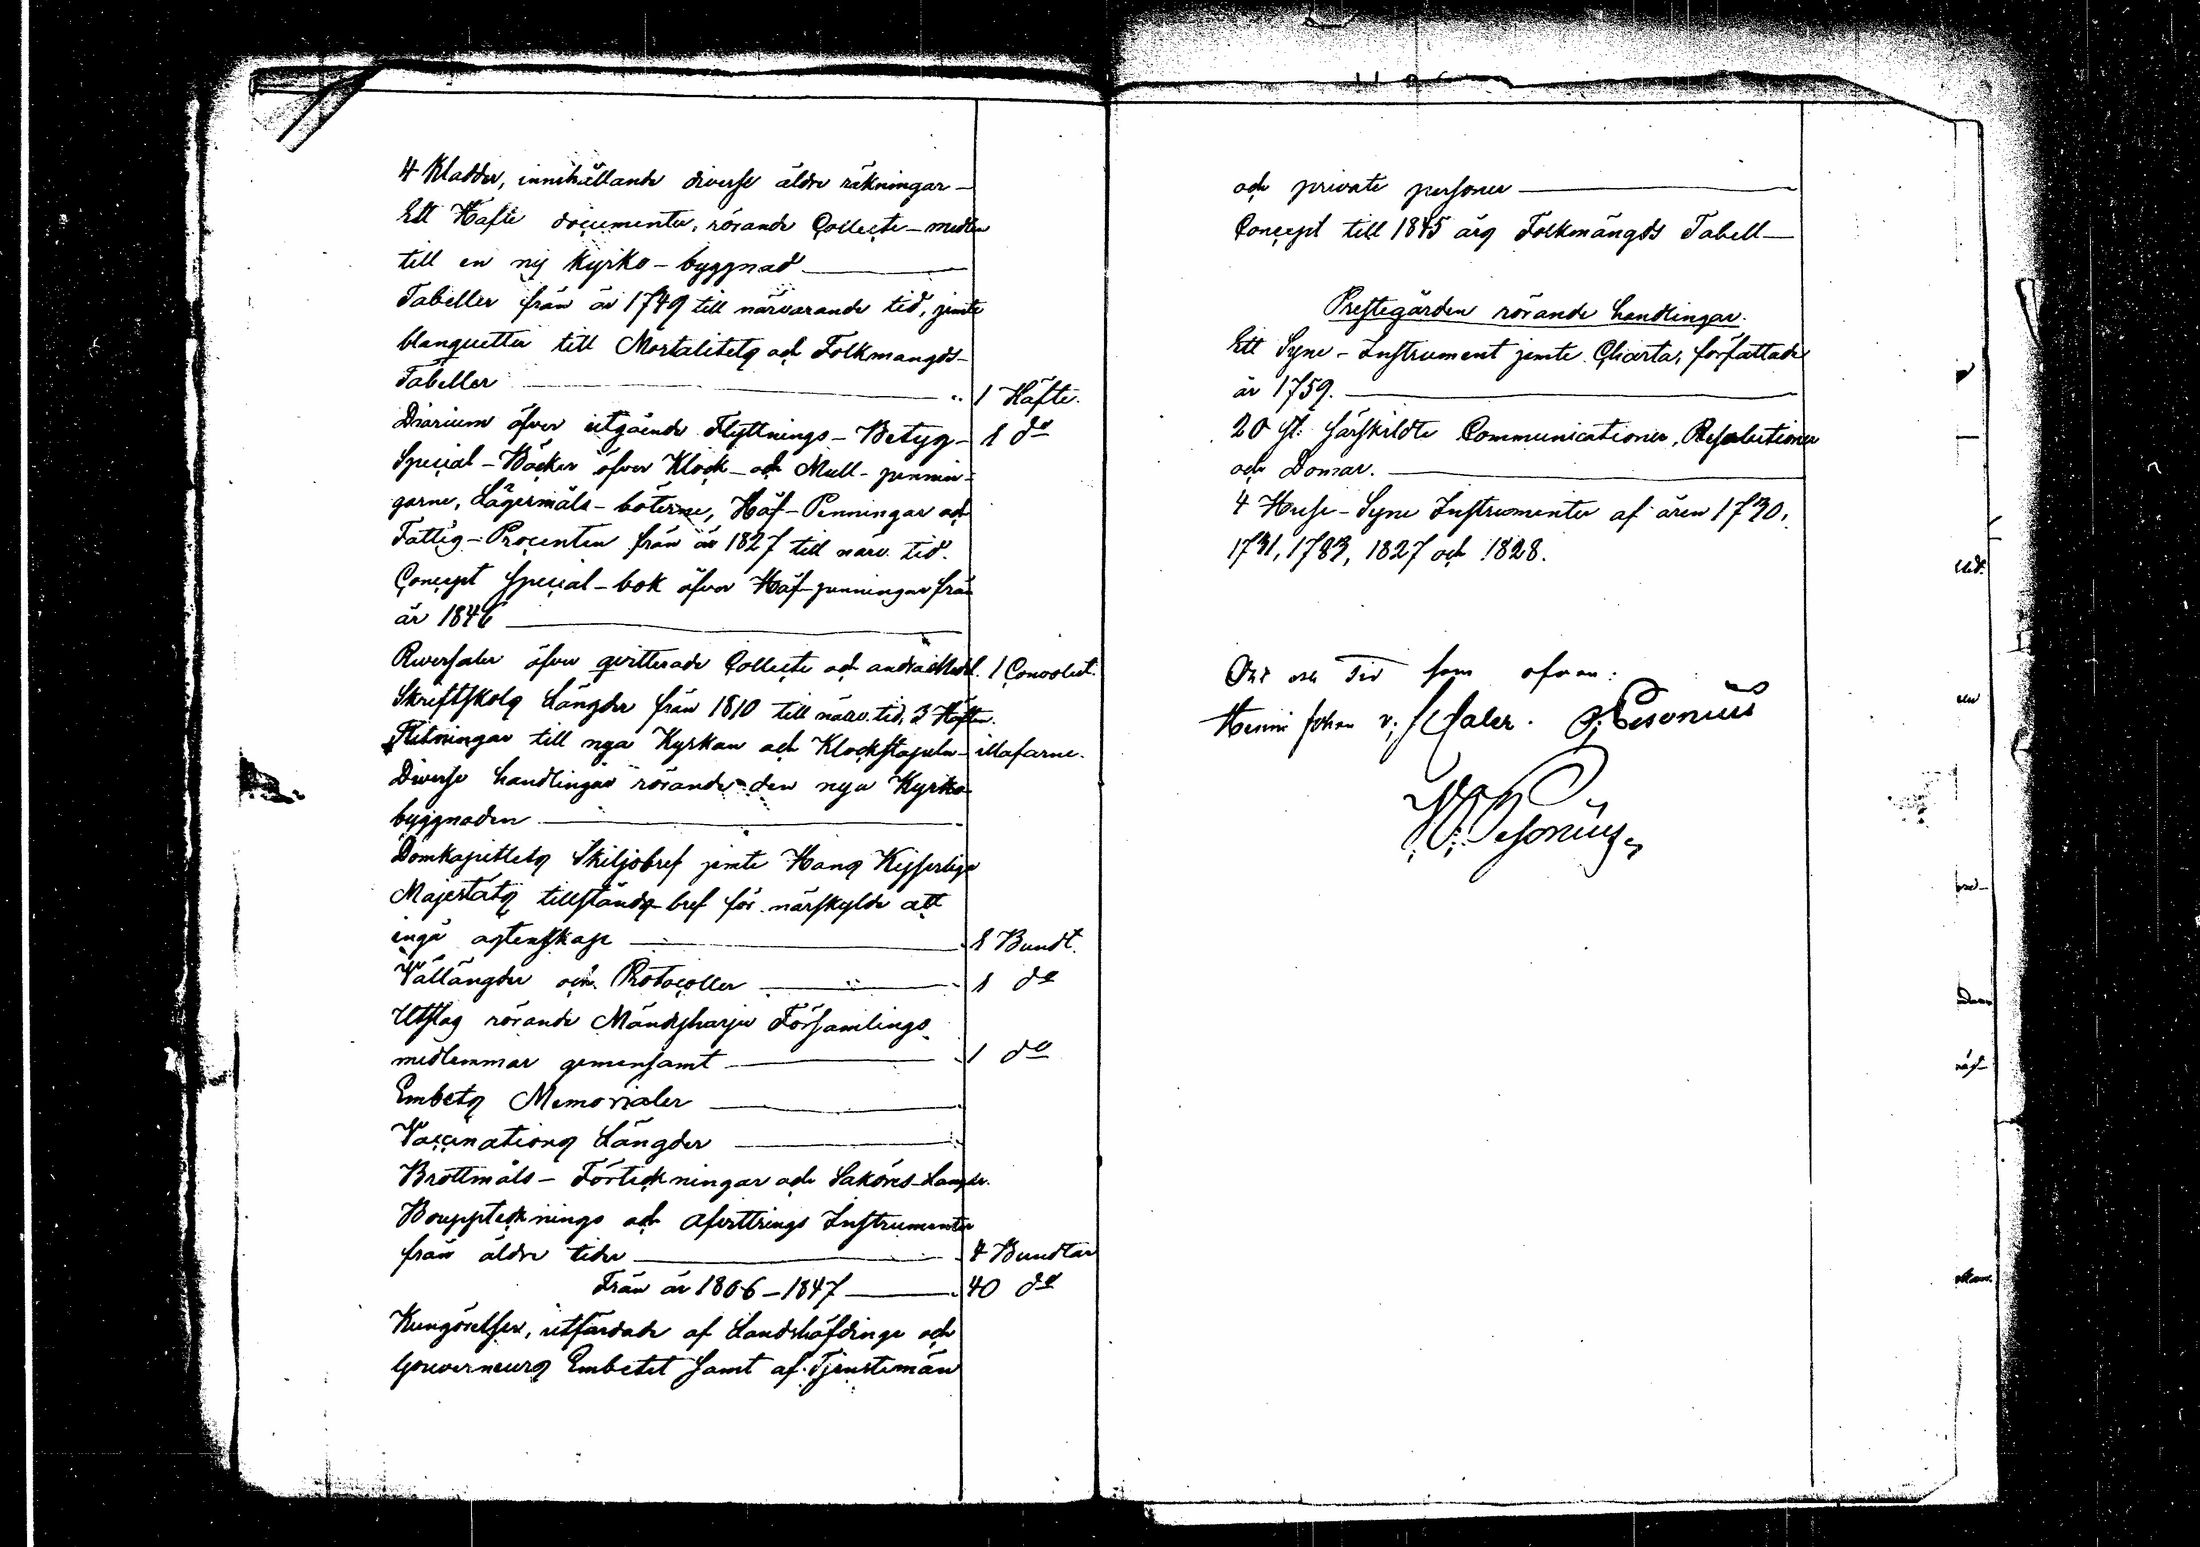 4 Kladdar, innehållande diverse äldre räkningar —
Ett Häfte documenter, rörande Collecte-medlen
till en ny Kyrko-byggnad —
Tabeller från år 1749 till närvarande tid, jemte
blanquetter till Mortalitets och Folkmängds-
Tabeller — 1 Häfte.
Diarium öfver utgående Flyttnings-Betyg — 1 do
Special-Böcker öfver Klock- och Mull-pennin-
garne, Lägermåls-böterne, Håf-Penningar och
Fattig-Procenten från år 1827 till närv. tid.
Concept special-bok öfver Håf-penningar från
år 1846 —
Reversaler öfver qvitterade Collecte och andra Medel. 1 Convolut.
Skriftskols Längder från 1810 till närv. tid, 3 Häften.
Ritningar till nya Kyrkan och Klockstapeln —
Diverse handlingar rörande den nya Kyrko
byggnaden —
Domkapitlets Skiljobref jemte Hans Kejserliga
Majestäts tillstånds-bref för närskylde att
ingå ägtenskap — 1 Bundt.
Vallängder och Protocoller — 1 do
Utslag rörande Mändyharju Församlings
medlemmar gemensamt — 1 do
Embets Memorialer —
Vaccinations Längder —
Brottmåls-Förteckningar och Saköres-Längder.
Bouppteknings och Afvittrings Instrumenter
från äldre tider — 4 Bundtar
Från år 1806-1847 — 40 do
Kungörelser, utfärdade af Landshöfdinge och
Gouverneurs Embetet samt af Tjenstemän
och private personer —
Concept till 1845 års Folkmängds Tabell —
Prestegården rörande handlingar.
Ett Syne-Instrument jemte Charta, författade
år 1759. —
20 st: särskildte Communicationer, Resolutioner
och Domar. —
4 Huse-Syne Instrumenter af åren 1730,
1731, 1783, 1827 och 1828.
Ort och Tid som ofvan:
Johan
W. Pesonius